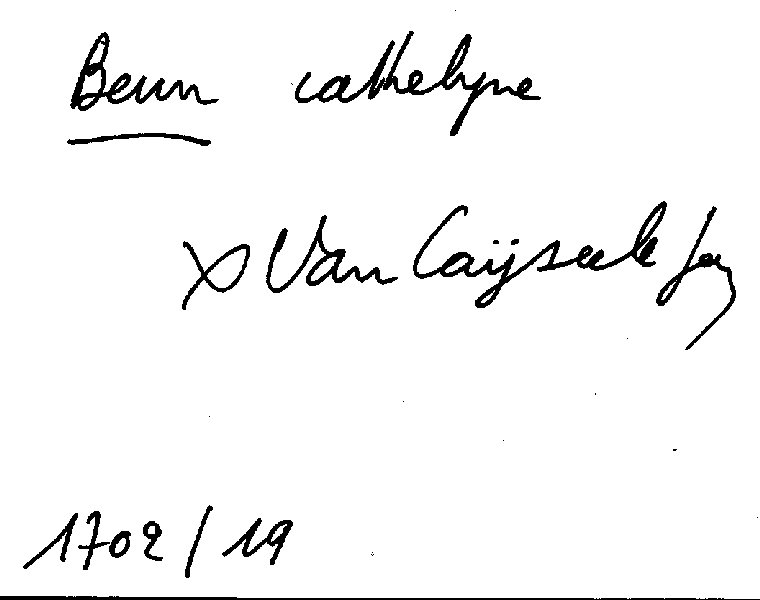 Beun cathelyne
x Van Caijseele Jan
1702/19